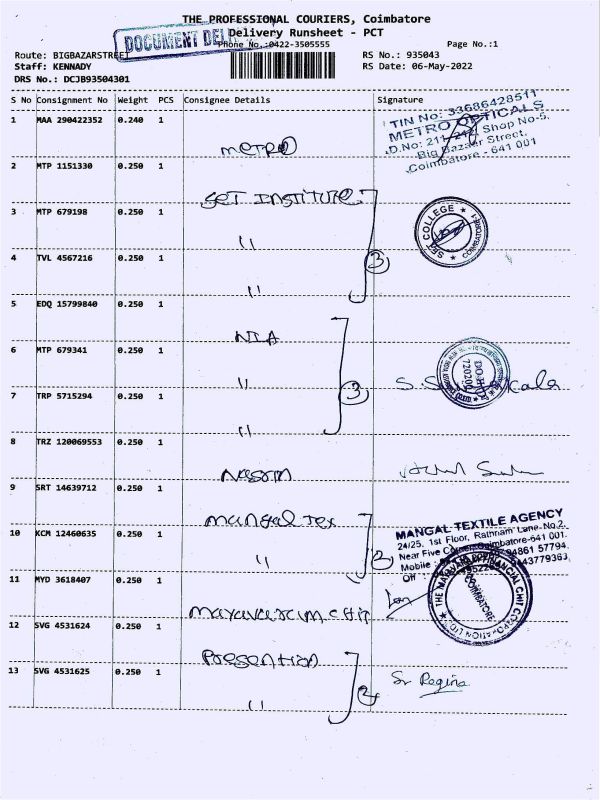 THE PROFESSIONAL COURIERS, Coimbatore
DOCUMENT DEL
Delivery Runsheet - PCT
Phone No.:0422-3505555
Page No.:1
Route: BIGBAZARSTREET
RS No.: 935043
Staff: KENNADY
RS Date: 06-May-2022
DRS No.: DCJB93504301
S No Consignment No Weight PCS Consignee Details Signature
1 MAA 290422352 0.240 1 METRO
TIN No: 33686428511
METRO OPTICALS
D.No: 211- Shop No-5,
Big Bazaar Street,
Coimbatore - 641 001
2 MTP 1151330 0.250 1 SET INSTITUTE.
3 MTP 679198 0.250 1 "
SET COLLEGE
4 TVL 4567216 0.250 1 " 3
5 EDQ 15799840 0.250 1 NIA
6 MTP 679341 0.250 1 "
7 TRP 5715294 0.250 1 " 3
8 TRZ 120069553 0.250 1 Nassim
9 SRT 14639712 0.250 1 Mangal Tex
10 KCM 12460635 0.250 1 " 2
MANGAL TEXTILE AGENCY
24/25, 1st Floor, Rathnam Lane-No.2,
Near Five Corner, Coimbatore-641 001.
Mobile : 94861 57794,
Off : 43779363,
11 MYD 3618407 0.250 1 Mayavaram chit
THE MAYAVARAM FINANCIAL CHIT CORPORATION LTD.
COIMBATORE
12 SVG 4531624 0.250 1 Presention
13 SVG 4531625 0.250 1 " 2
Sr Regina